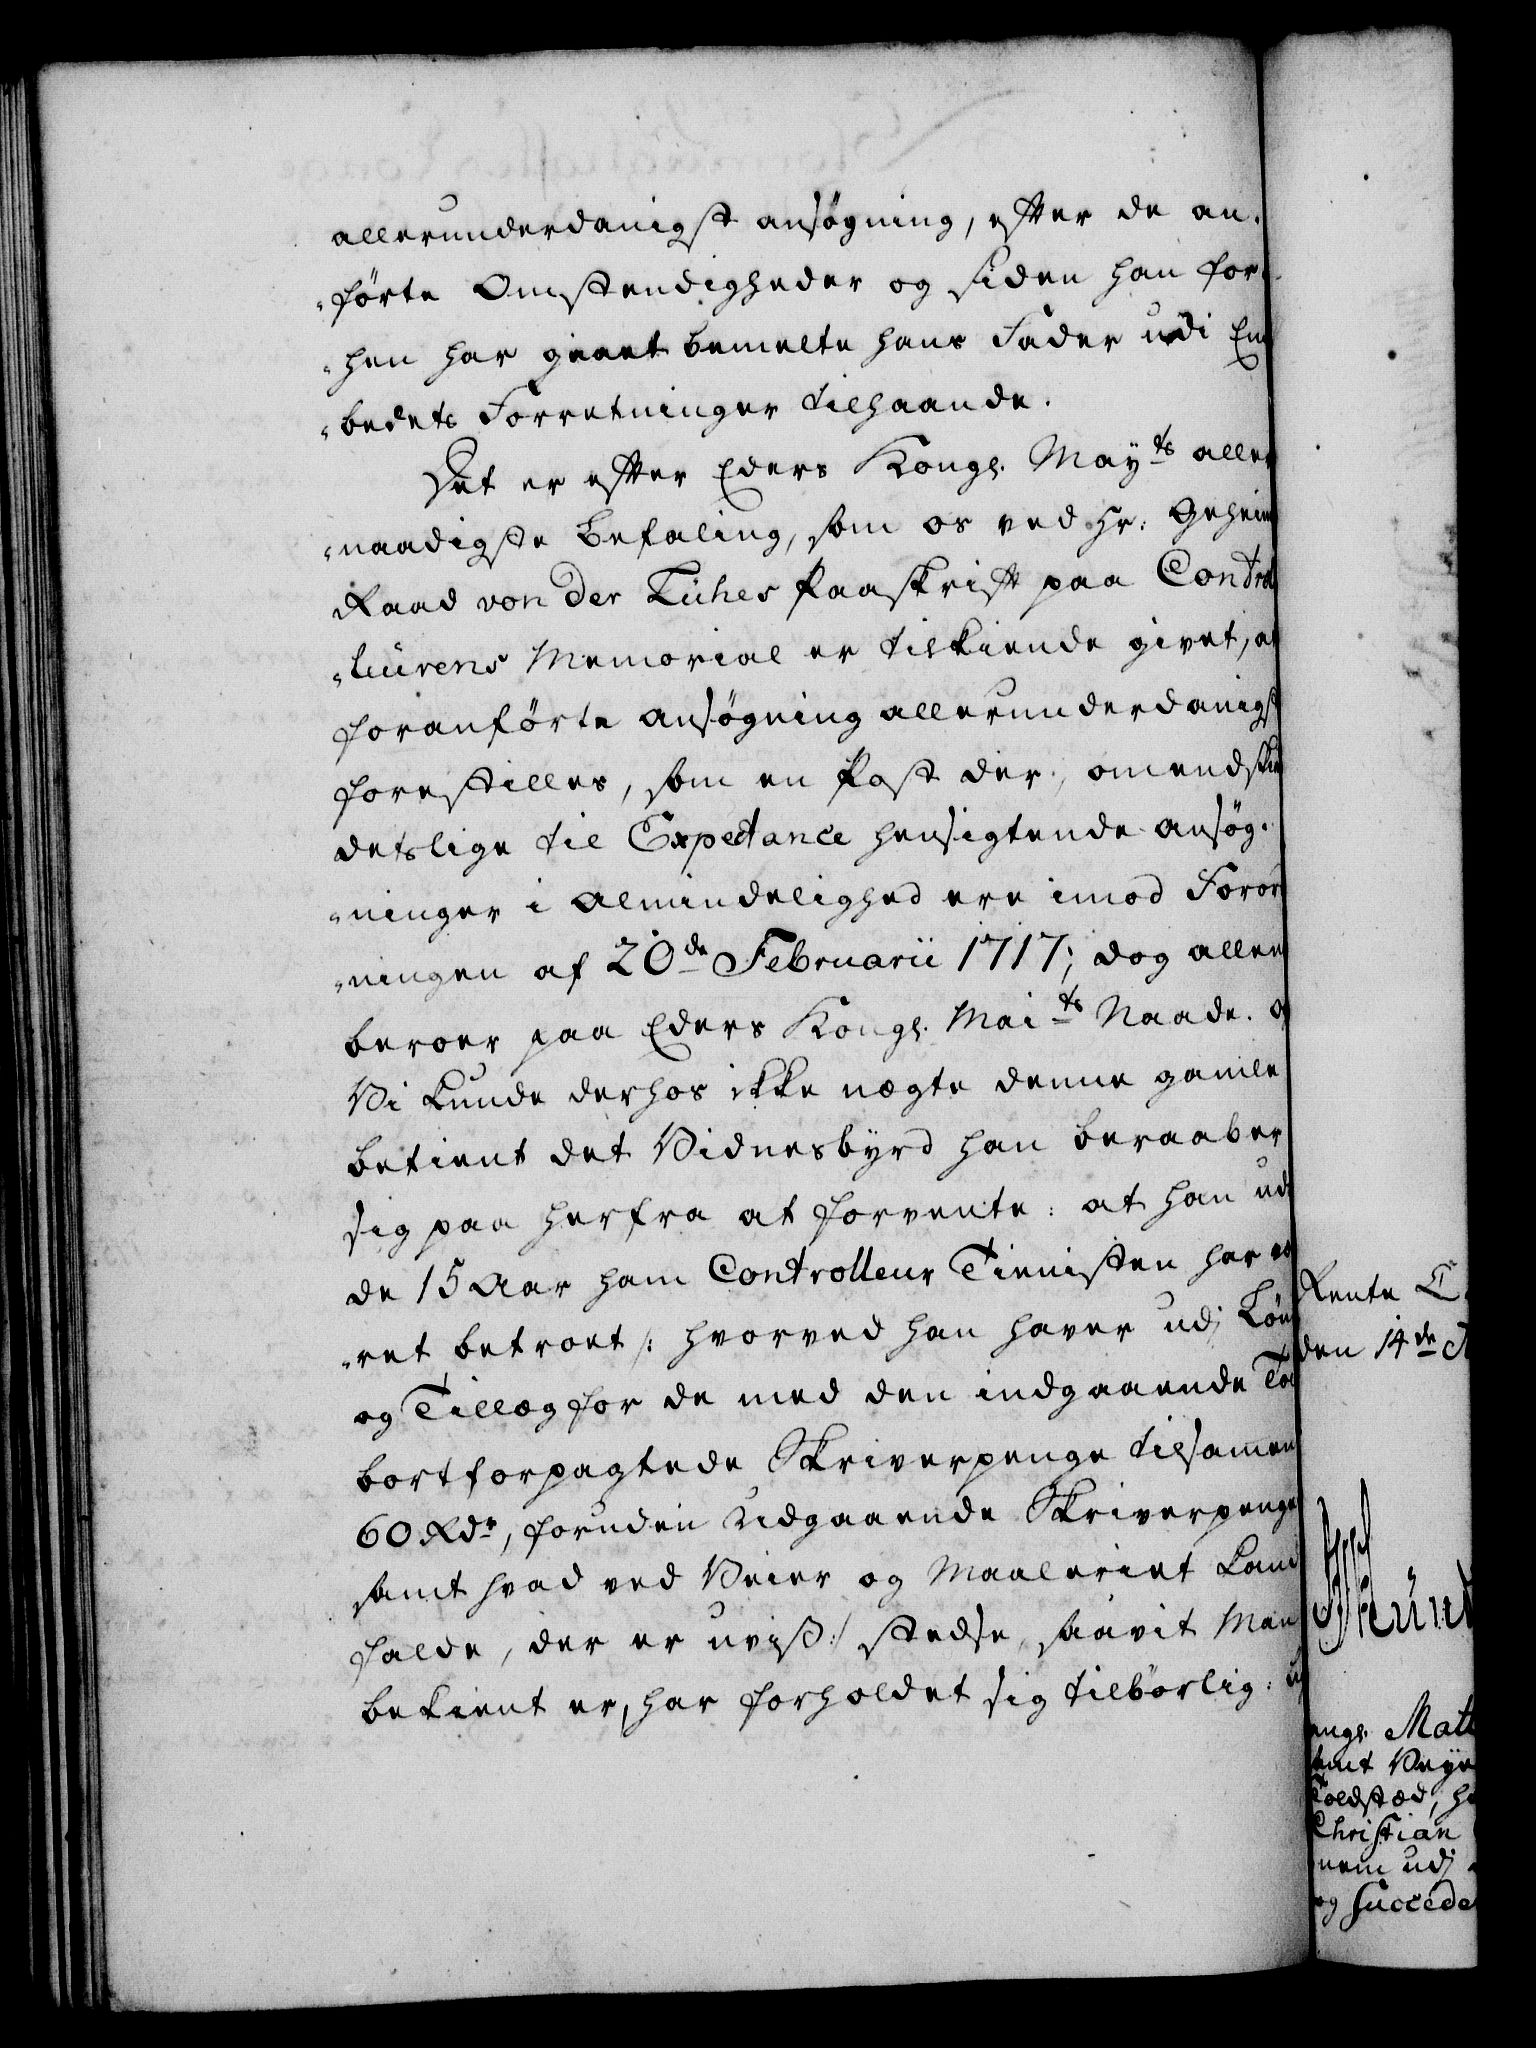 allerunderdanigst ansøgning, efter de an-
-førte Omstendigheder og siden han for-
-hen har gaaet bemelte hans Fader udi Em
-bedets Forretninger tilhaande.
Det er efter Eders Kongl. Mayts aller
-naadigste befaling, som os ved Hr. Geheim
Raad von der Lühes Paaskrift paa Control
-leurens Memorial er tilkiende givet, at
foranførte ansøgning allerunderdanigst
forestilles, som en Post der, omendski
detslige til Expectance hensigtende ansøg-
-ninger i Almindelighed ere imod Foror
-ningen af 20de Februarii 1717; dog aller
beroer paa Eders Kongl. Maits Naade. O
Vi kunde derhos ikke nægte denne gamle
betient det Vidnesbyrd han beraaber
sig paa herfra at forvente: at han udi
de 15 Aar ham Controlleur Tienisten har væ
-ret betroet /: hvorved han haver udj Løn
og Tillæg for de med den indgaaende To
bortforpagtede Skriverpenge tilsamen
60 Rdr, foruden Udgaaende Skriverpenge
samt hvad ved Veier og Maaleriet kand
falde, der er uvist :/ stedse, saavit Man
bekient er, har forholdet sig tilbørlig:
Rente C
den 14de
ongl. Mait
samt Veye
Toldsted, h
Christian
nem udj
og succede